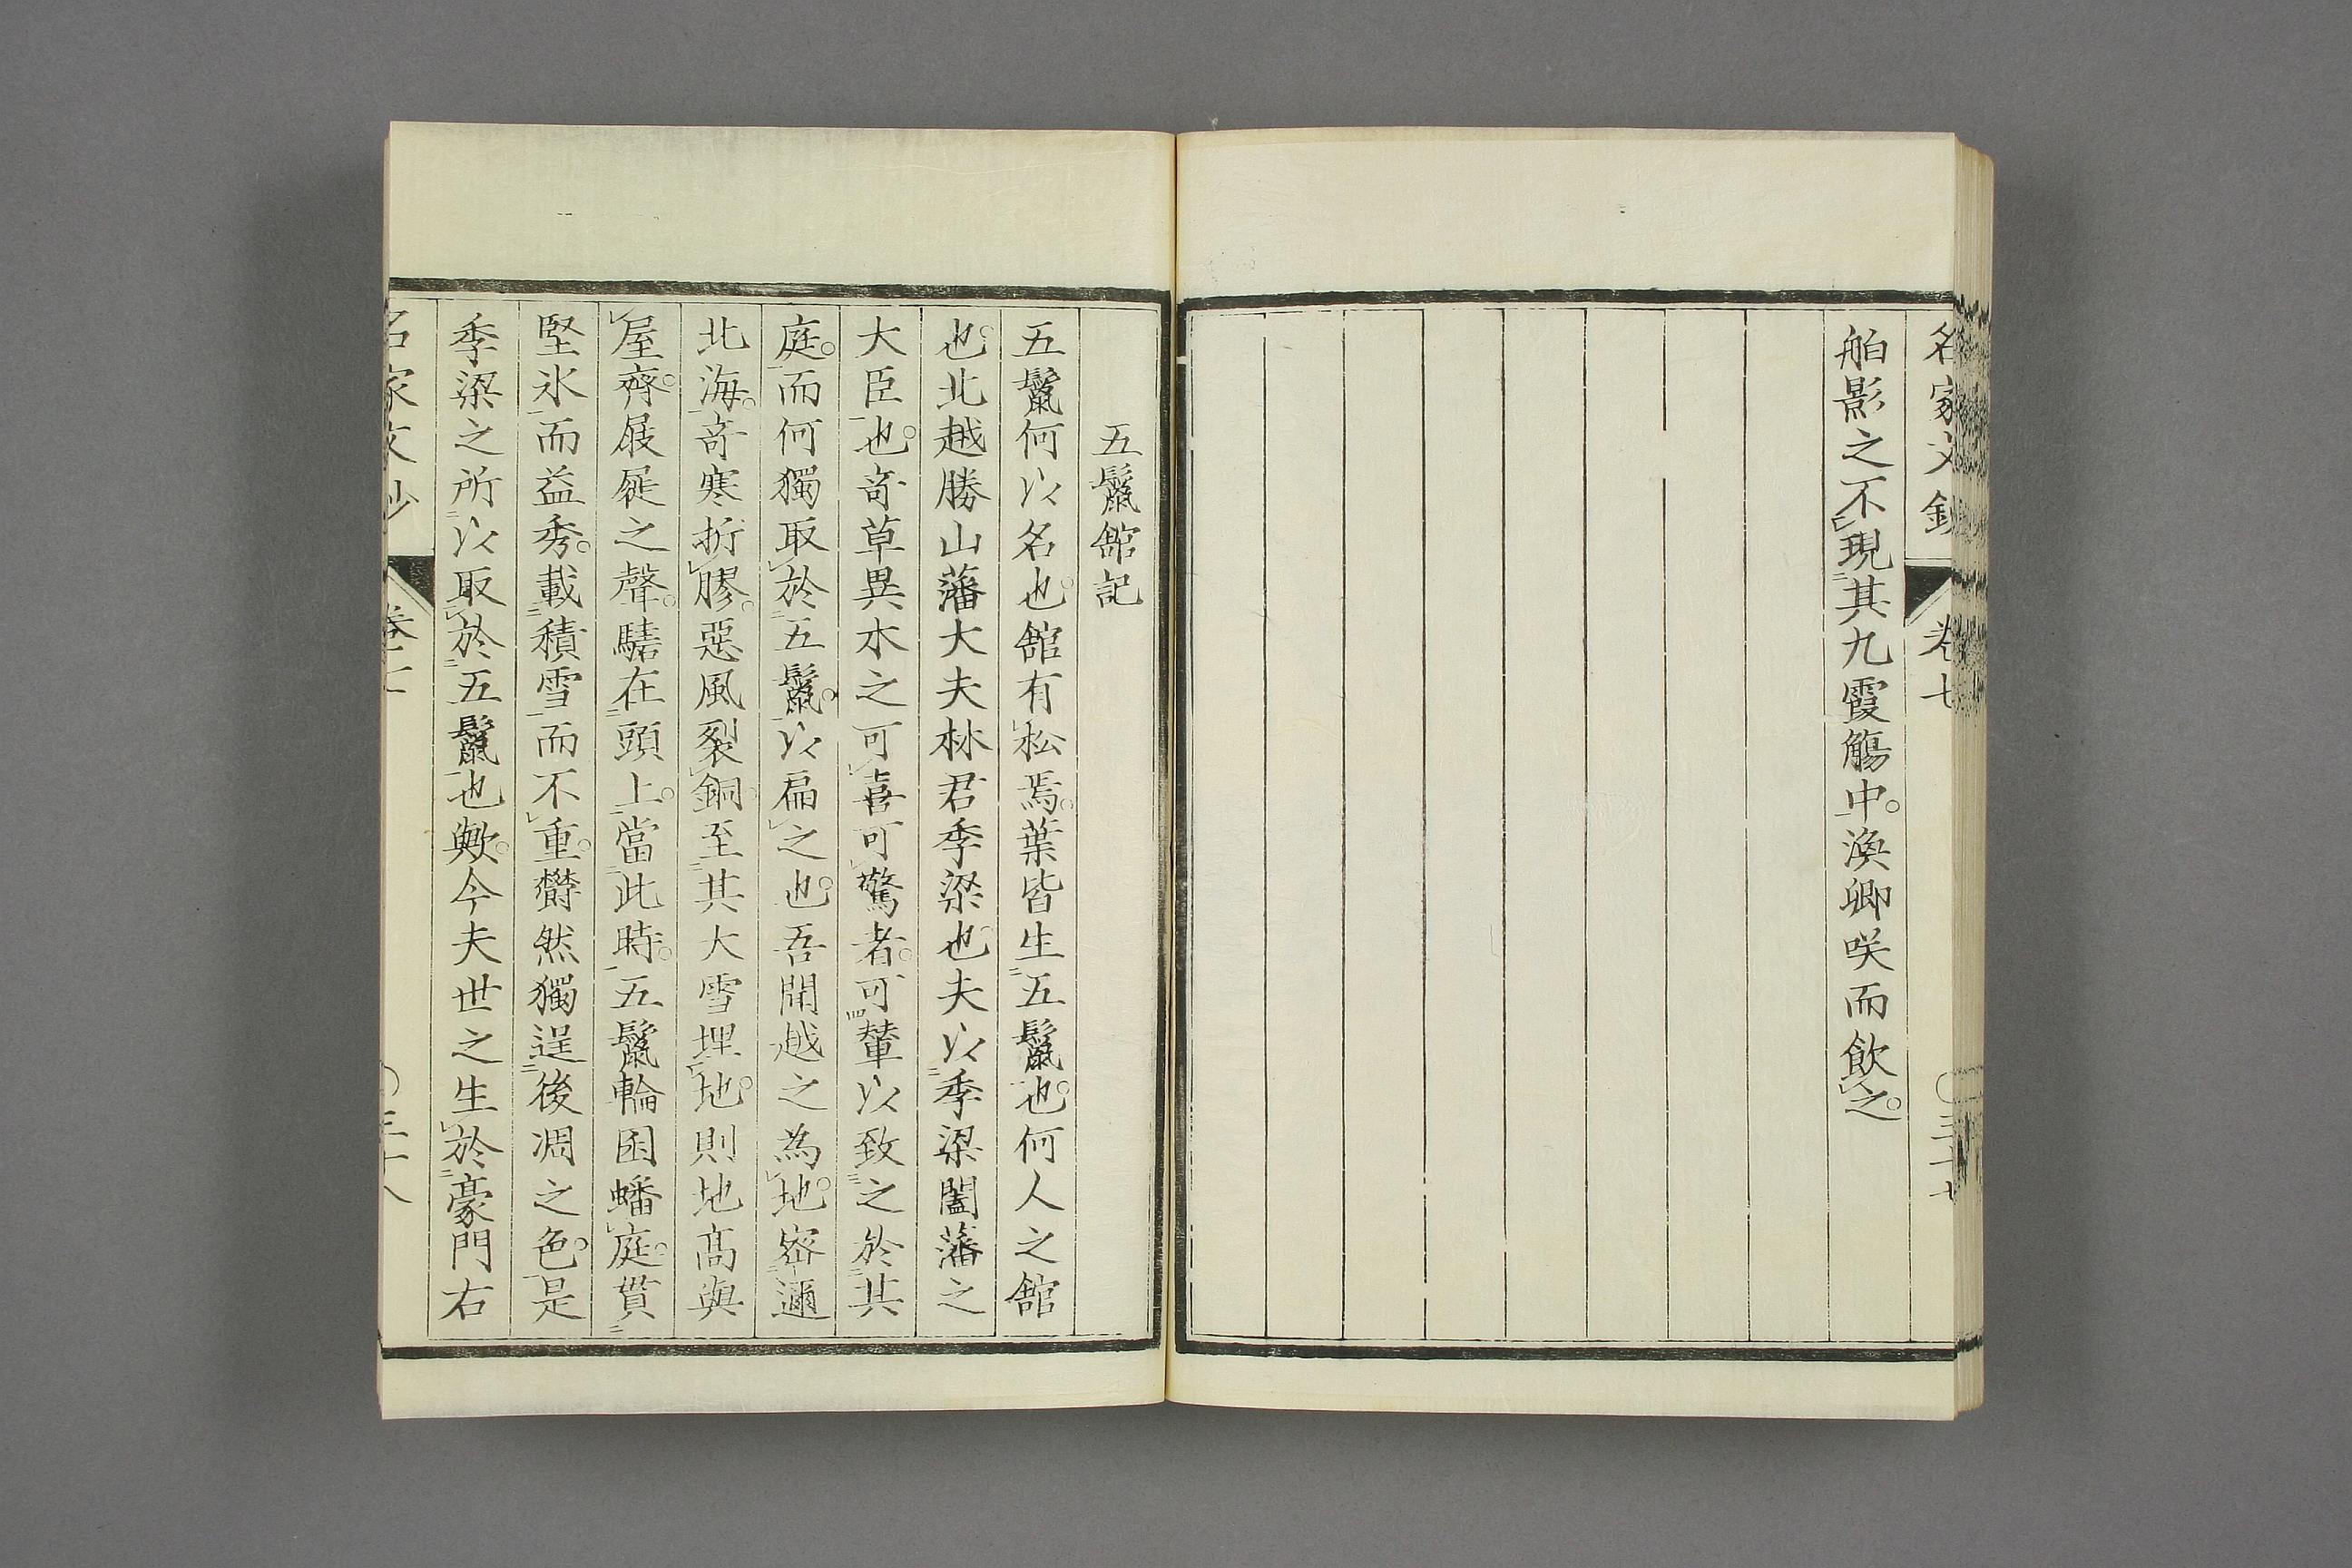 名家文鈔 卷七 三十七
舶影之不現其九霞觴中渙卿咲而飲之
五鬣館記
五鬣何以名也館有松焉葉皆生五鬣也何人之館
也北越勝山藩大夫林君季梁也夫以季梁闔藩之
大臣也也奇草異木之可喜可驚者可輦以致之於其
庭而何獨取於五鬣以扁之也吾聞越之為地密邇
北海奇寒折膠惡風裂銅至其大雪埋地則地高與
屋齊屐屣之聲騞在頭上當此時五鬣輪囷蟠庭貫
堅氷而益秀載積雪而不重欝然獨逞後凋之色是
季梁之所以取於五鬣也歟今夫世之生於豪門右
名家文鈔 卷七 三十八